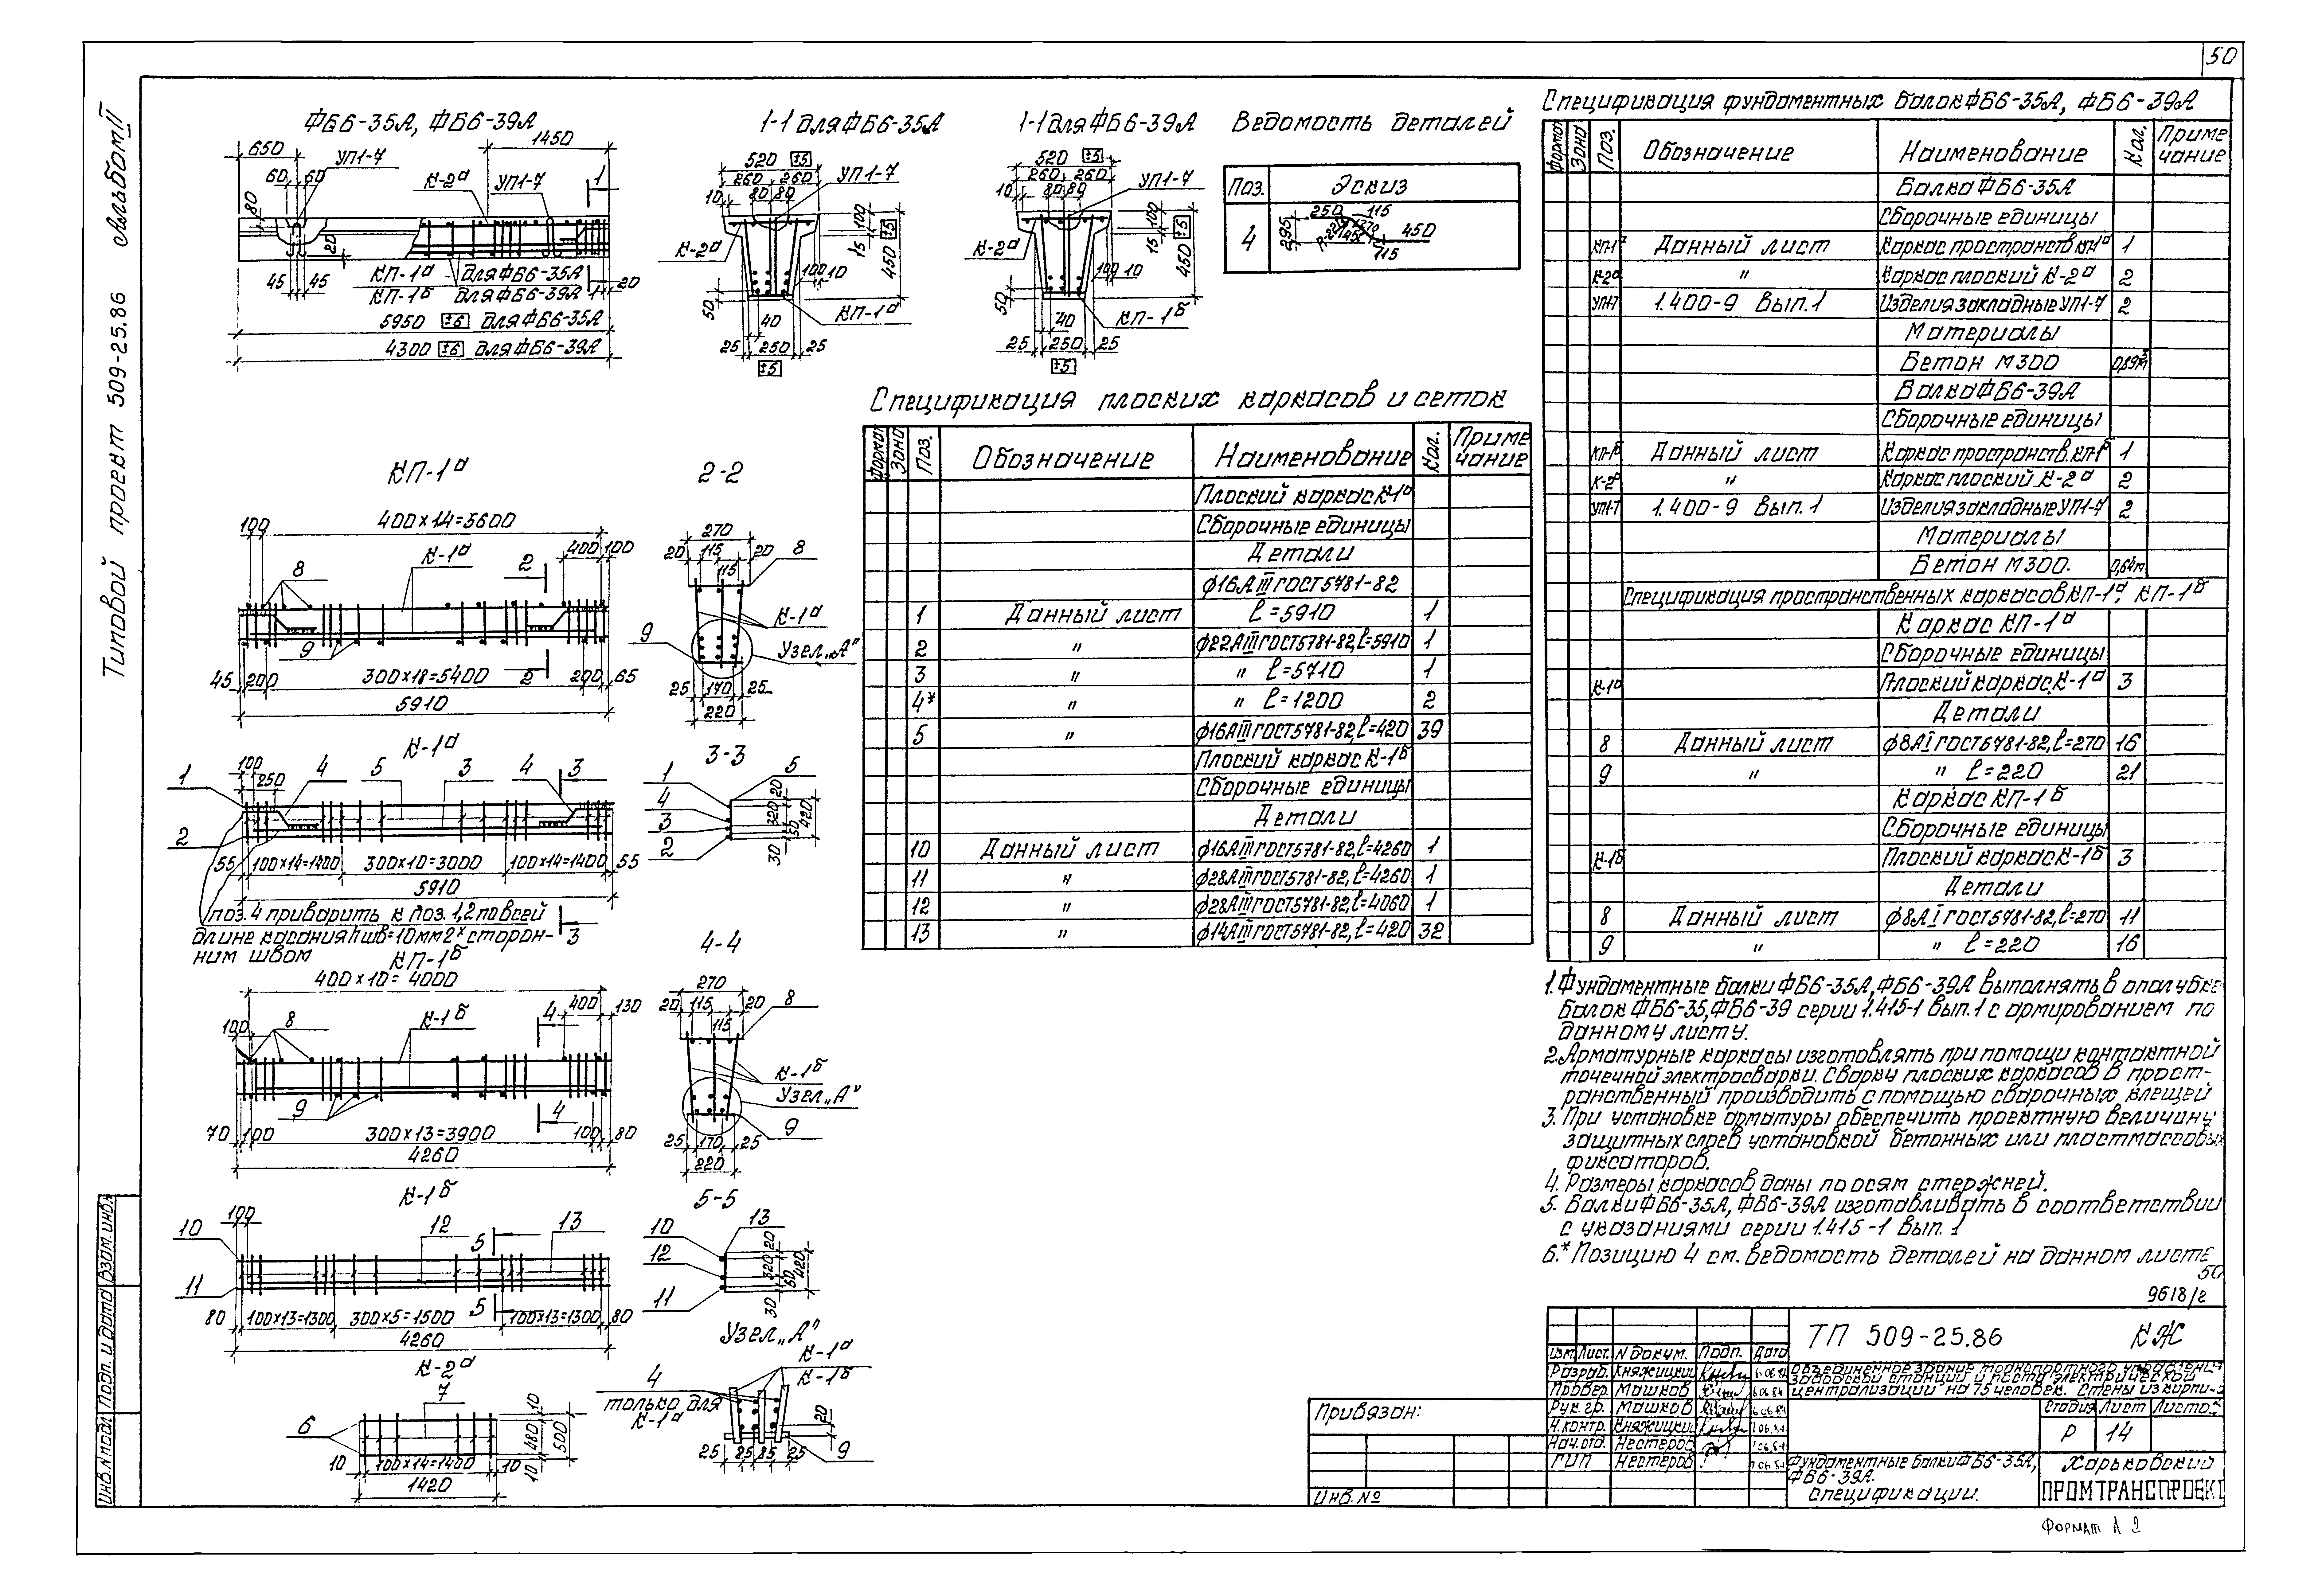 50
Типовой проект 509-25.86 Альбом II
ФБ6-35А, ФБ6-39А
650
УП1-7
1450
60 60
К-2ª
УП1-7
1
80
20
45 45
КП-1ª - для ФБ6-35А
КП-1ᵟ для ФБ6-39А
1 20
5950 ±6 для ФБ6-35А
4300 ±6 для ФБ6-39А
1-1 для ФБ6-35А
520 ±5
260 260
УП1-7
10 80 80
100
15
450 ±5
К-2ª
100 10
50
40
КП-1ª
25 250 25
±5
1-1 для ФБ6-39А
520 ±5
260 260
УП1-7
10 80 80
100
15
450 ±5
К-2ª
100 10
50
40
КП-1ᵟ
25 250 25
±5
Ведомость деталей
Поз. Эскиз
4
250 115
295
450
115
КП-1ª
100 400×14=5600
8 К-1ª 2 400 100
9
45 200 300×18=5400 2 200 65
5910
2-2
270
20 115 20 8
115
К-1ª
9
Узел „А"
25 170 25
220
К-1ª
1 100 250 4 5 3 4 3
2
55 100×14=1400 300×10=3000 100×14=1400 55
5910
поз. 4 приварить к поз. 1,2 по всей
длине касания hшв=10мм 2ˣ сторон-
ним швом
3
3-3
1 5
4
3
2
20
320
50
30
420
КП-1ᵟ
400×10=4000
100 8 К-1ᵟ 4 400 130
9 4
70 100 300×13=3900 100 80
4260
4-4
270
20 115 20 8
115
К-1ᵟ
Узел „А"
9
25 170 25
220
К-1ᵟ
10 100 12 5 13
11
80 100×13=1300 300×5=1500 5 100×13=1300 80
4260
5-5
10 13
12
11
20
320
50
30
420
К-2ª
7
6
10
480
500
10
10 100×14=1400 10
1420
Узел „А"
К-1ª
К-1ᵟ
4
только для
К-1ª
20
25 85 85 25 9
Спецификация плоских каркасов и сеток
Формат Зона Поз. Обозначение Наименование Кол. Приме чание
Плоский каркас К-1ª
Сборочные единицы
Детали
ф16АIII ГОСТ 5781-82
1 Данный лист ℓ=5910 1
2 " ф22АIII ГОСТ 5781-82, ℓ=5910 1
3 " " ℓ=5710 1
4* " " ℓ=1200 2
5 " ф16АIII ГОСТ 5781-82, ℓ=420 39
Плоский каркас К-1ᵟ
Сборочные единицы
Детали
10 Данный лист ф16АIII ГОСТ 5781-82, ℓ=4260 1
11 " ф28АIII ГОСТ 5781-82, ℓ=4260 1
12 " ф28АIII ГОСТ 5781-82, ℓ=4060 1
13 " ф14АIII ГОСТ 5781-82, ℓ=420 32
Спецификация фундаментных балок ФБ6-35А, ФБ6-39А
Формат Зона Поз. Обозначение Наименование Кол. Приме чание
Балка ФБ6-35А
Сборочные единицы
КП-1ª Данный лист Каркас пространств. КП-1ª 1
К-2ª " Каркас плоский К-2ª 2
УП1-7 1.400-9 Вып.1 Изделия закладные УП1-7 2
Материалы
Бетон М300 0,89м³
Балка ФБ6-39А
Сборочные единицы
КП-1ᵟ Данный лист Каркас пространств. КП-1ᵟ 1
К-2ª " Каркас плоский К-2ª 2
УП1-7 1.400-9 Вып.1 Изделия закладные УП1-7 2
Материалы
Бетон М300. 0,64м
Спецификация пространственных каркасов КП-1ª, КП-1ᵟ
Каркас КП-1ª
Сборочные единицы
К-1ª Плоский каркас К-1ª 3
Детали
8 Данный лист ф8АI ГОСТ 5781-82, ℓ=270 16
9 " " ℓ=220 21
Каркас КП-1ᵟ
Сборочные единицы
К-1ᵟ Плоский каркас К-1ᵟ 3
Детали
8 Данный лист ф8АI ГОСТ 5781-82, ℓ=270 11
9 " " ℓ=220 16
1. Фундаментные балки ФБ6-35А, ФБ6-39А выполнять в опалубке
балок ФБ6-35, ФБ6-39 серии 1.415-1 вып.1 с армированием по
данному листу.
2. Арматурные каркасы изготовлять при помощи контактной
точечной электросварки. Сварку плоских каркасов в прост-
ранственный производить с помощью сварочных клещей
3. При установке арматуры обеспечить проектную величину
защитных слоев установкой бетонных или пластмассовых
фиксаторов.
4. Размеры каркасов даны по осям стержней.
5. Балки ФБ6-35А, ФБ6-39А изготавливать в соответствии
с указаниями серии 1.415-1 вып. 1
6.* Позицию 4 см. ведомость деталей на данном листе
50
9618/2
ТП 509-25.86 КЖ
Изм. Лист. N докум. Подп. Дата
Разраб. Княжицкий
Провер. Машков
Рук. гр. Машков
Н.контр. Княжицкий
Нач.отд. Нестеров
ГИП Нестеров
Объединенное здание транспортного управления
заводской станции и поста электрической
централизации на 75 человек. Стены из кирпича
Стадия Лист Листов
Р 14
Фундаментные балки ФБ6-35А,
ФБ6-39А.
Спецификации.
Харьковский
ПРОМТРАНСПРОЕКТ
Привязан:
Инв. №
Инв. N подл. Подп. и дата Взам. инв. N
Формат А 2